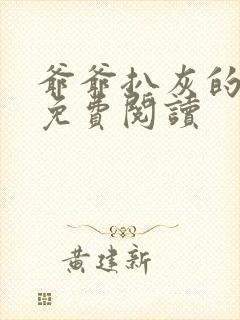 爺爺扒灰的
免費閱讀
黃建新